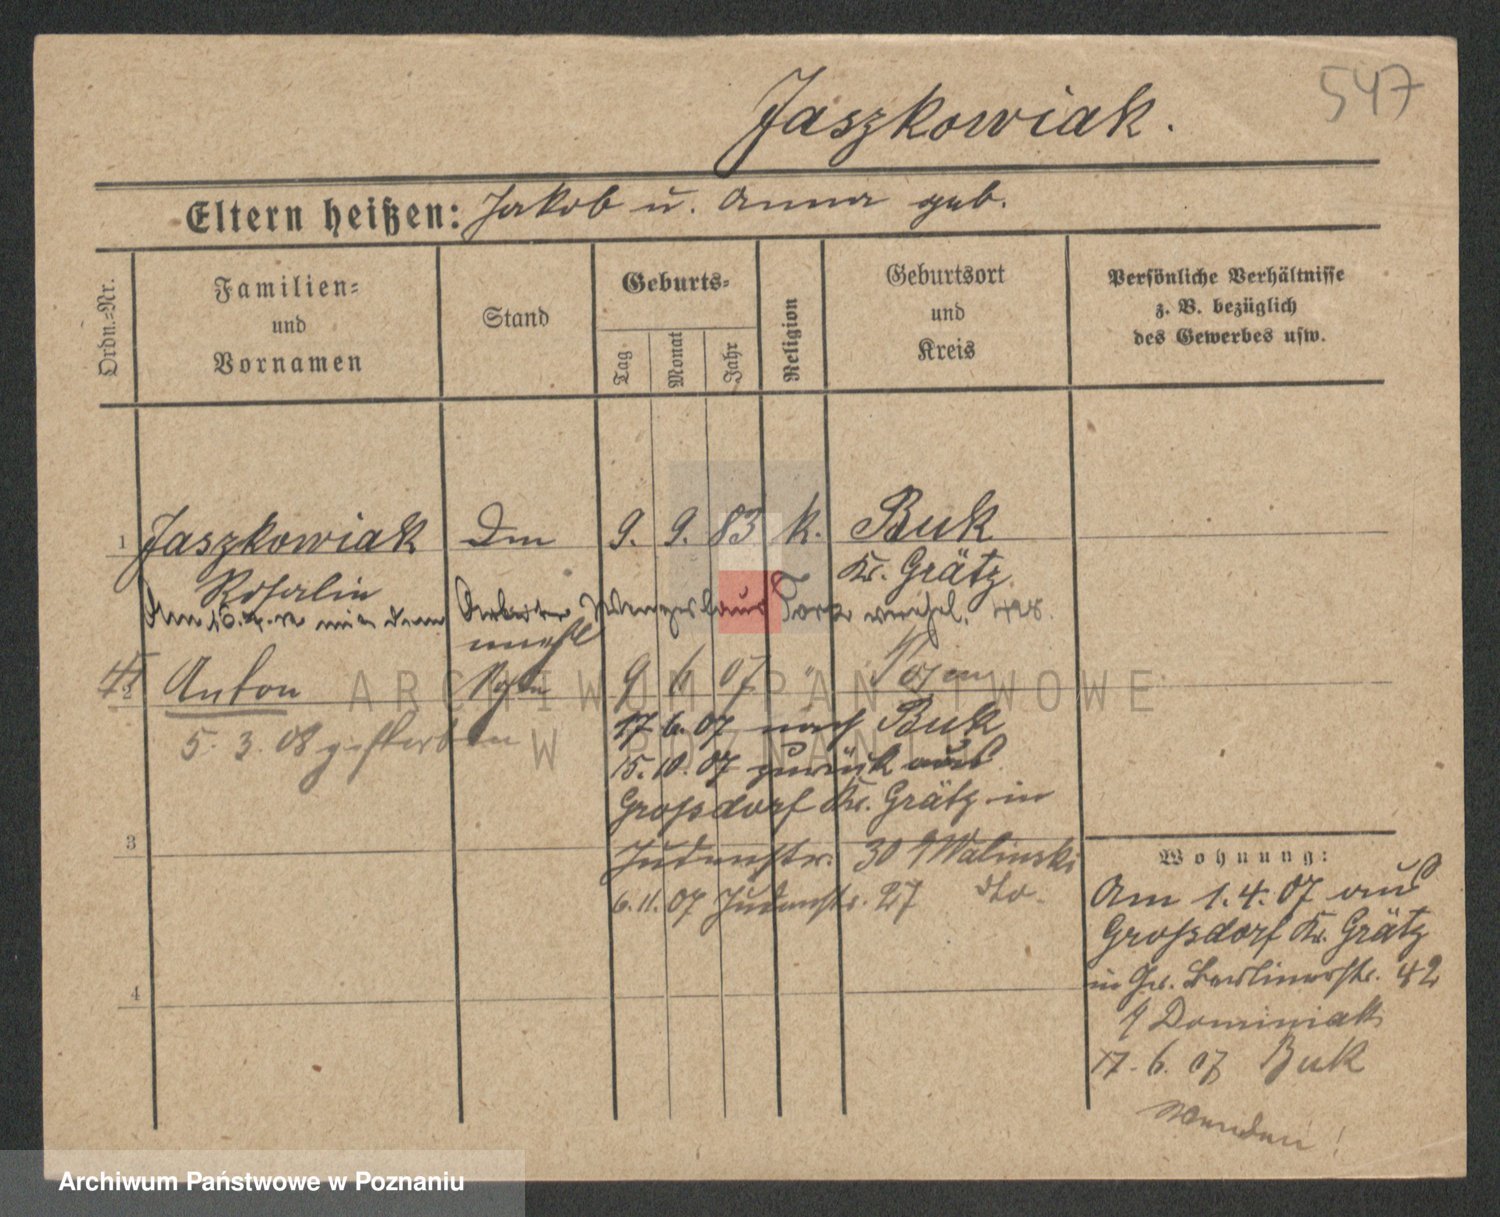 547
Jaszkowiak.
Eltern heißen: Jakob u. Anna geb.
Ordn.=Nr.
Familien=
und
Vornamen
Stand
Geburts=
Tag
Monat
Jahr
Religion
Geburtsort
und
Kreis
Persönliche Verhältnisse
z. B. bezüglich
des Gewerbes usw.
1 Jaszkowiak Dm 9. 9. 83 k. Buk
Rosalin Kr. Grätz.
Am mit dem Arbeiter
unehl
2 Anton Sohn 9 6 07 " Posen
5. 3. 08 gestorben
17. 6. 07 nach Buk
15. 10. 07 zurück aus
Grossdorf Kr. Grätz in
3 Judenstr. 30 Walinski
6. 11. 07 Judenstr. 27 dto.
4
Wohnung:
Am 1. 4. 07 aus
Grossdorf Kr. Grätz
in Gr. Berlinerstr. 42
Dominiak
17. 6. 07 Buk
Wenden!
ARCHIWUM PAŃSTWOWE
W POZNANIU
Archiwum Państwowe w Poznaniu